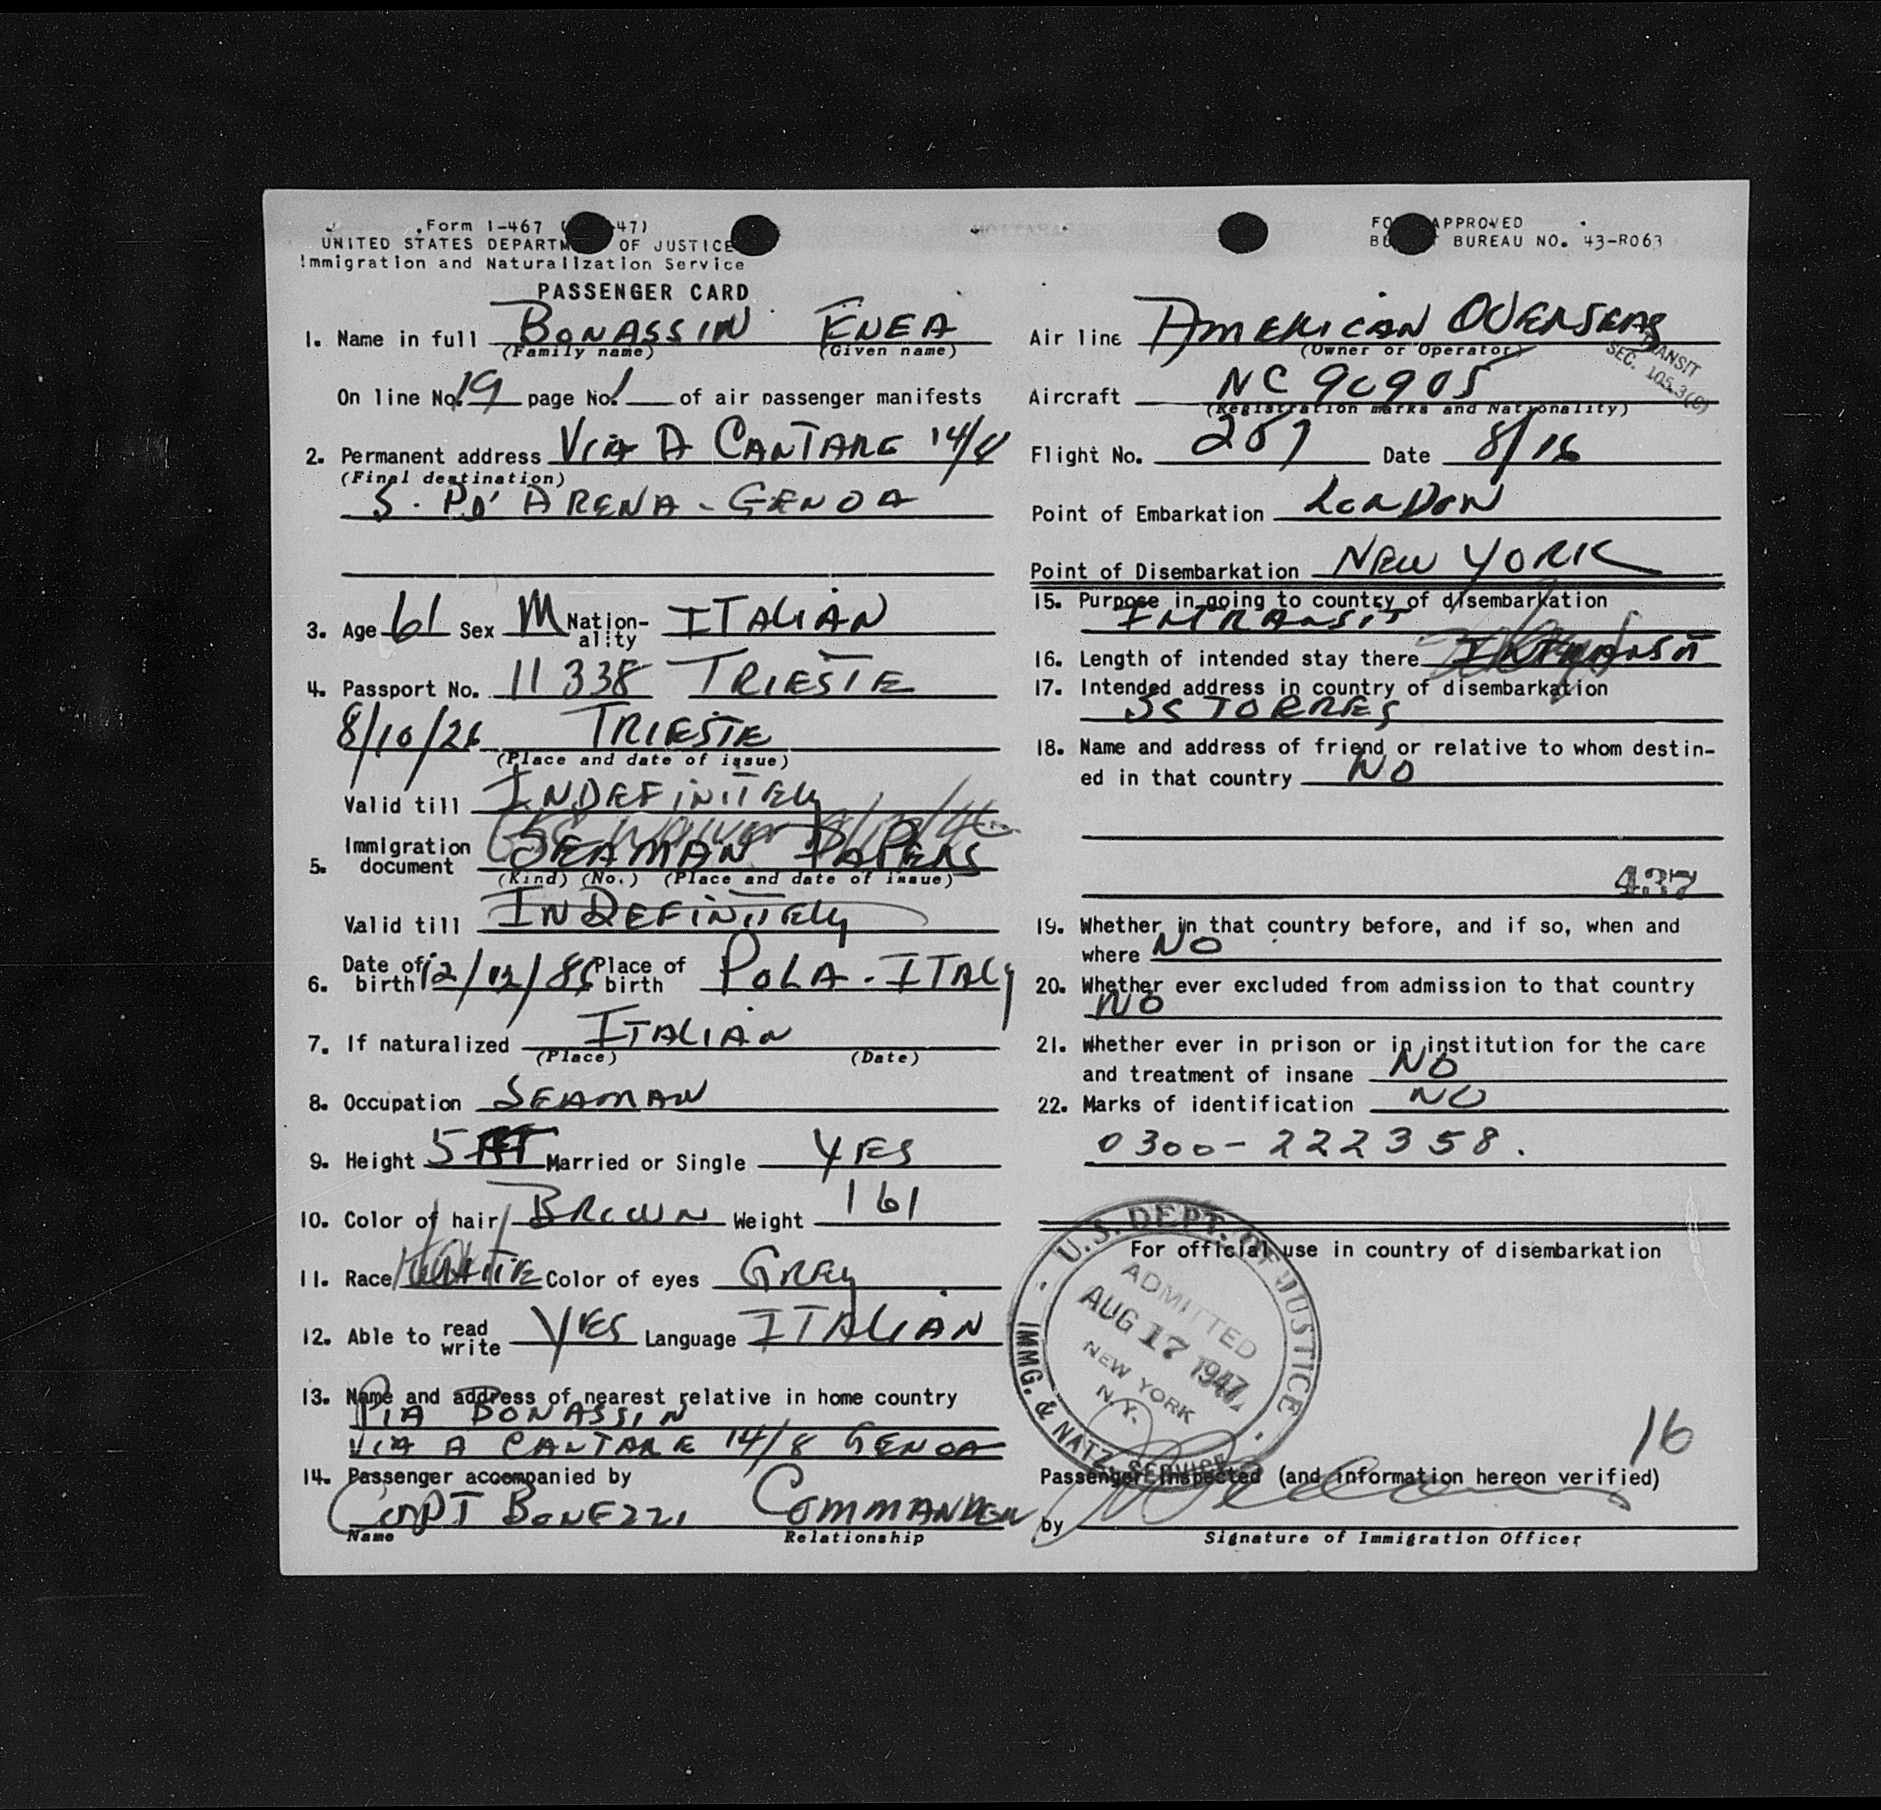 Form I-467 ( 47)
UNITED STATES DEPARTM OF JUSTICE
Immigration and Naturalization Service
PASSENGER CARD
1. Name in full BONASSIN ENEA
(Family name) (Given name)
On line No. 19 page No. 1 of air passenger manifests
2. Permanent address VIA A CANTARE 14/8
(Final destination)
S. PD' ARENA - GENOA
3. Age 61 Sex M Nationality ITALIAN
4. Passport No. 11338 TRIESTE
8/10/26 TRIESTE
(Place and date of issue)
Valid till INDEFINITELY
5. Immigration document SEAMAN PAPERS
(Kind) (No.) (Place and date of issue)
Valid till INDEFINITELY
6. Date of birth 12/12/86 Place of birth POLA - ITALY
7. If naturalized ITALIAN
(Place) (Date)
8. Occupation SEAMAN
9. Height 5 FT Married or Single YES
10. Color of hair BROWN Weight 161
11. Race WHITE Color of eyes GREY
12. Able to read write YES Language ITALIAN
13. Name and address of nearest relative in home country
PIA BONASSIN
VIA A CANTARE 14/8 GENOA
14. Passenger accompanied by
CAPT BONEZZI COMMANDER
Name Relationship
FO APPROVED
B BUREAU NO. 43-R063
Air line AMERICAN OVERSEAS
(Owner or Operator)
TRANSIT
SEC. 105.3(C)
Aircraft NC 90905
(Registration marks and Nationality)
Flight No. 267 Date 8/16
Point of Embarkation LONDON
Point of Disembarkation NEW YORK
15. Purpose in going to country of disembarkation
INTRANSIT
16. Length of intended stay there INTRANSIT
17. Intended address in country of disembarkation
SS TORRES
18. Name and address of friend or relative to whom destin-
ed in that country NO
437
19. Whether in that country before, and if so, when and
where NO
20. Whether ever excluded from admission to that country
NO
21. Whether ever in prison or in institution for the care
and treatment of insane NO
22. Marks of identification NO
0300-222358.
For official use in country of disembarkation
U.S. DEPT. OF JUSTICE
ADMITTED
AUG 17 1947
NEW YORK
N.Y.
IMMG. & NATZ. SERVICE
16
Passenger Inspected (and information hereon verified)
by
Signature of Immigration Officer